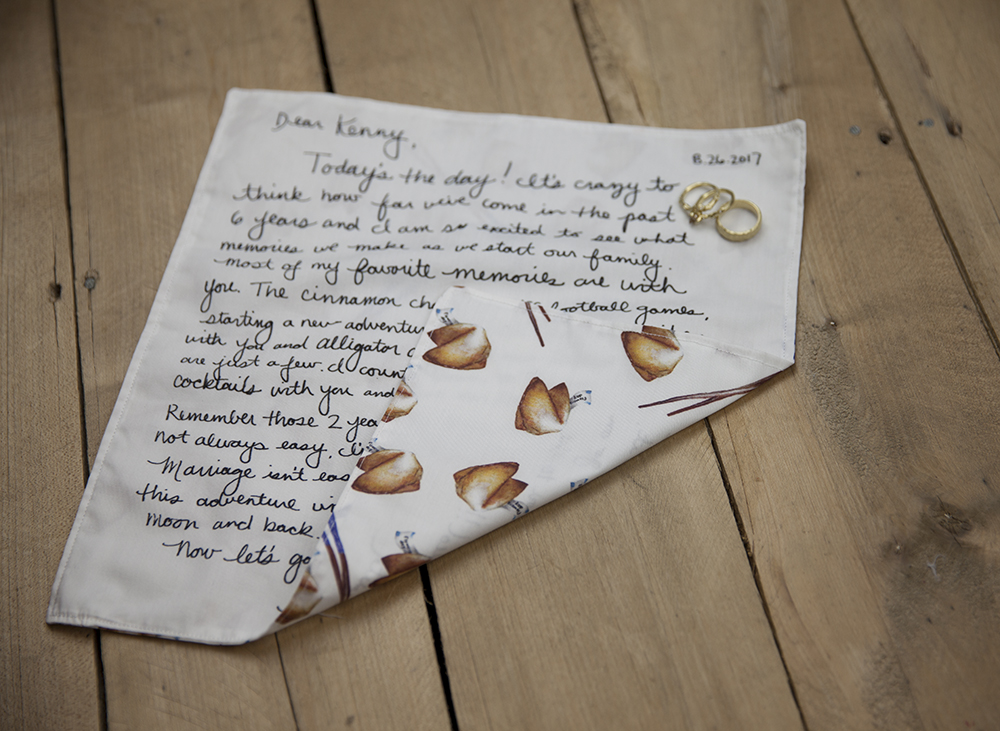 Dear Kenny,
8.26.2017
Today's the day! It's crazy to
think how far we've come in the past
6 years and I am so excited to see what
memories we make as we start our family.
most of my favorite memories are with
you. The cinnamon ch football games,
starting a new adventu
with you and Alligator
are just a few. I count
cocktails with you and
Remember those 2 yea
not always easy,
Marriage isn't eas
this adventure wi
Moon and back.
Now let's go